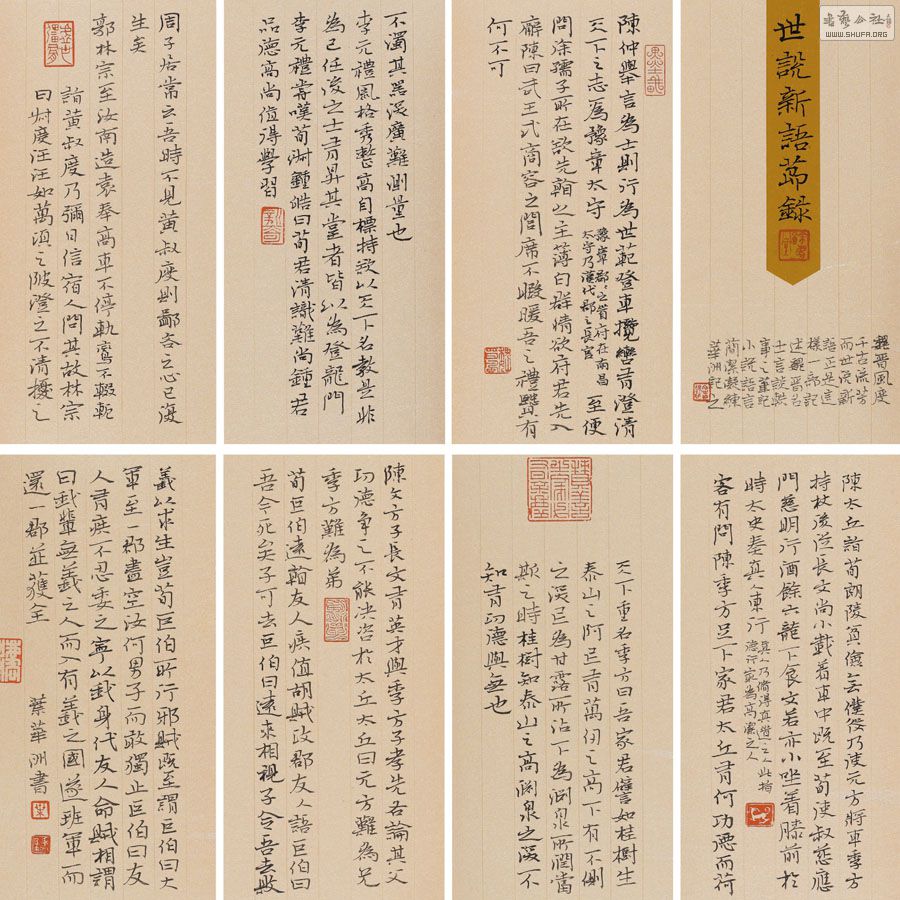 書藝公社
WWW.SHUFA.ORG
世說新語節錄
魏晉風度
千古流芳
而世說新
語正是這
樣一部記
述魏晉名
士言談軼
事之筆記
小說語言
簡潔凝練
華洲記之
陳仲舉言為士則行為世範登車攬轡有澄清
天下之志為豫章太守豫章郡之首府在南昌太守乃漢代郡之長官至便
問徐孺子所在欲先看之主薄曰群情欲府君先入
廨陳曰武王式商容之閭席不暇暖吾之禮賢有
何不可
不濁其器深廣難測量也
李元禮風格秀整高自標持欲以天下名教是非
為己任後之士有昇其堂者皆以為登龍門
李元禮嘗嘆荀淑鍾皓曰荀君清識難尚鍾君
品德高尚值得學習
周子居常云吾時不見黃叔度則鄙吝之心已復
生矣
郭林宗至汝南造袁奉高車不停軌鸞不輟軛
詣黃叔度乃彌日信宿人問其故林宗
曰叔度汪汪如萬頃之陂澄之不清擾之
陳太丘詣荀朗陵貧儉無僕役乃使元方將車季方
持杖後從長文尚小載着車中既至荀使叔慈應
門慈明行酒餘六龍下食文若亦小坐着膝前於
時太史奏真人東行真人乃修得真道之人此指德行為高潔之人
客有問陳季方足下家君太丘有何功德而荷
天下重名季方曰吾家君譬如桂樹生
泰山之阿上有萬仞之高下有不測
之深上為甘露所沾下為淵泉所潤當
斯之時桂樹知泰山之高淵泉之深不
知有功德與無也
陳文方子長文有英才與季方子孝先各論其父
功德爭之不能決咨於太丘太丘曰元方難為兄
季方難為弟
荀巨伯遠看友人疾值胡賊攻郡友人語巨伯曰
吾今死矣子可去巨伯曰遠來相視子令吾去敗
義以求生豈荀巨伯所行邪賊既至謂巨伯曰大
軍至一郡盡空汝何男子而敢獨止巨伯曰友
人有疾不忍委之寧以我身代友人命賊相謂
曰我輩無義之人而入有義之國遂班軍而
還一郡並獲全
葉華洲書